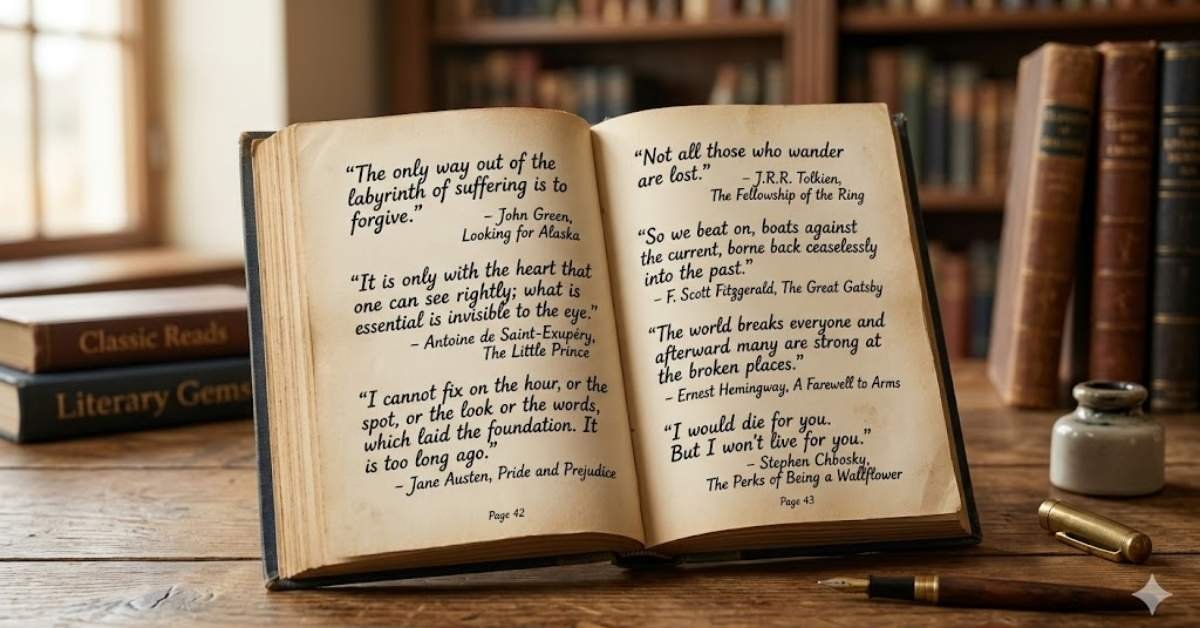 “The only way out of the
labyrinth of suffering is to
forgive.”
– John Green,
Looking for Alaska
“It is only with the heart that
one can see rightly; what is
essential is invisible to the eye.”
– Antoine de Saint-Exupéry,
The Little Prince
“I cannot fix on the hour, or the
spot, or the look or the words,
which laid the foundation. It
is too long ago.”
– Jane Austen, Pride and Prejudice
Page 42
“Not all those who wander
are lost.”
– J.R.R. Tolkien,
The Fellowship of the Ring
“So we beat on, boats against
the current, borne back ceaselessly
into the past.”
– F. Scott Fitzgerald, The Great Gatsby
“The world breaks everyone and
afterward many are strong at
the broken places.”
– Ernest Hemingway, A Farewell to Arms
“I would die for you.
But I won't live for you.”
– Stephen Chbosky,
The Perks of Being a Wallflower
Page 43
Classic Reads
Literary Gems